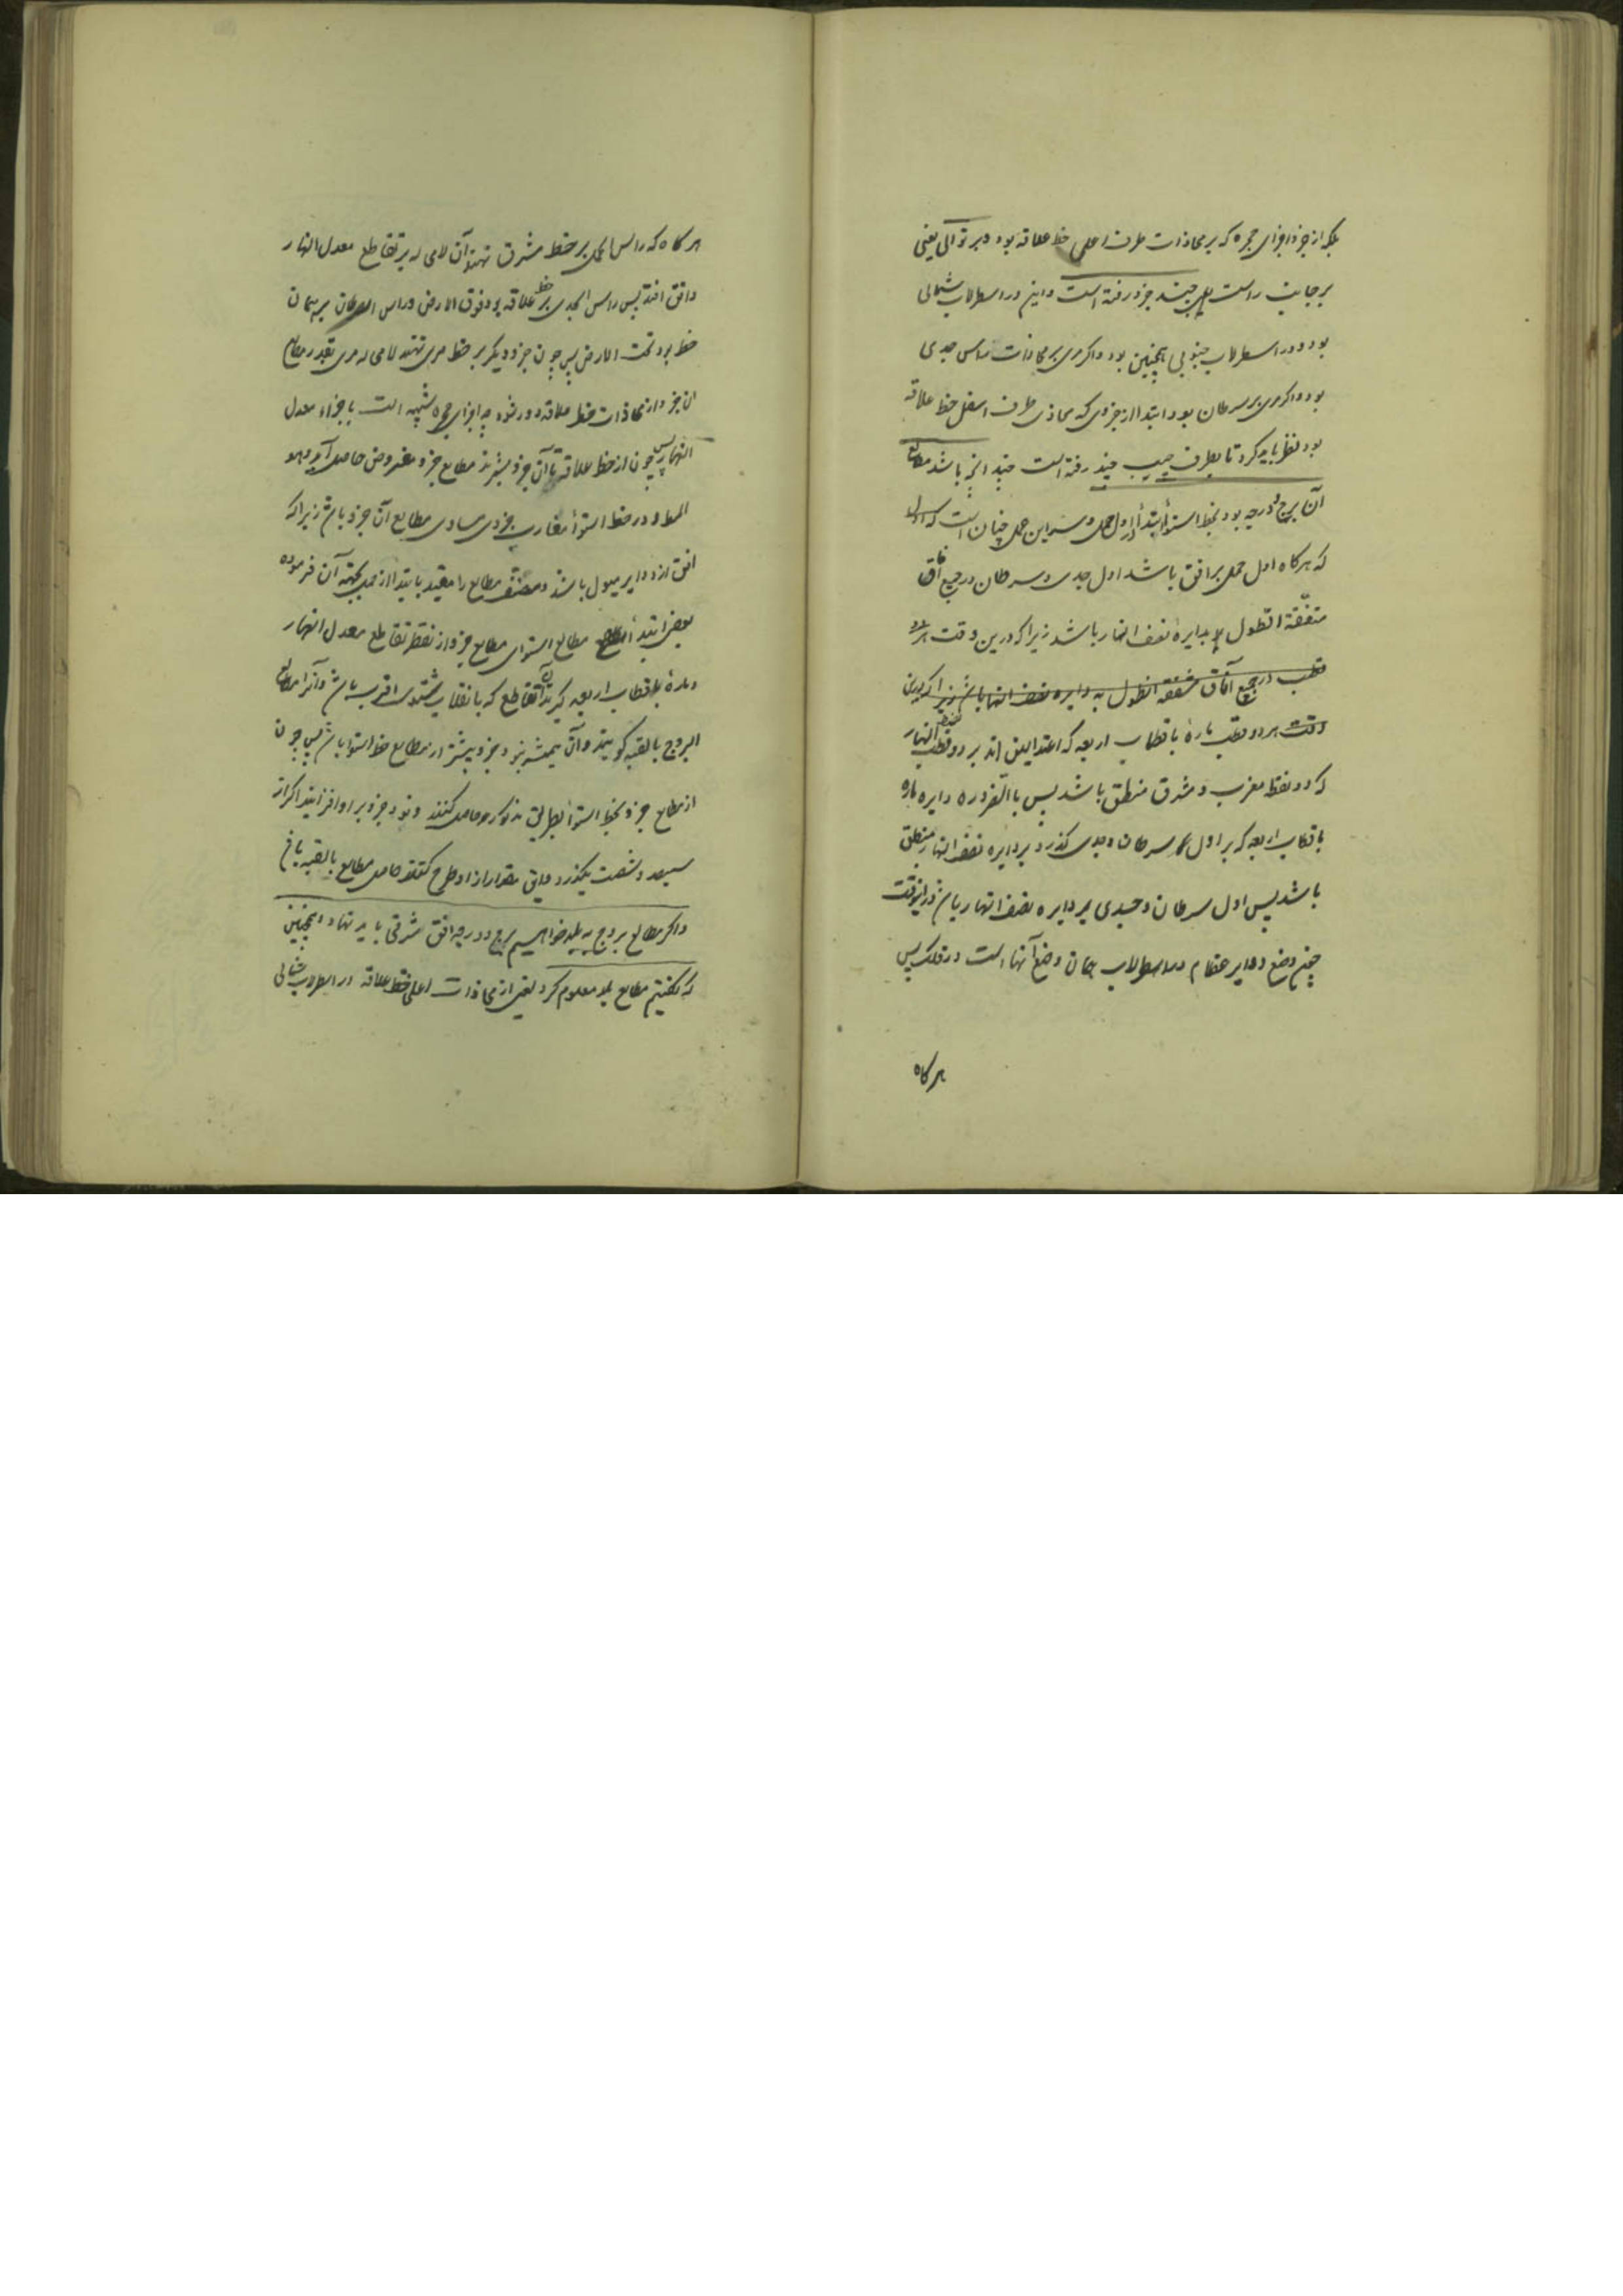 بلکه از جزو اجزای حجره که بر محاذات طرف اعلی خط علاقه بود و بر توالی یعنی
بر جانب راست چند جزو رفته است و این در اسطرلاب شمالی
بود و در اسطرلاب جنوبی همچنین بود و اکر مری بر محاذات راس جدی
بود و اکر مری بر سرطان بود ابتدا از جزوی که محاذی طرف اسفل خط علاقه
بود نظر باید کرد تا بطرف چپ چند رفته است چند انچه باشد مطالع
آن برج و درجه بود بخط استوا ابتدا از اول حمل و سر این عمل چنان است که
که هرکاه اول حمل بر افق باشد اول جدی و سرطان در جمیع آفاق
متفقة الطول بدایره نصف النهار باشد زیرا که درین وقت هر دو
قطب در جمیع آفاق متفقة الطول به دایره نصف النهار باشد زیرا که درین
وقت هر دو قطب ماره باقطاب اربعه که اعتدالین اند بر دو قطب نصف النهار
که دو نقطه مغرب و مشرق منطبق باشد پس بالضروره دایره ماره
باقطاب اربعه که بر اول سرطان و جدی کذرد بر دایره نصف النهار منطبق
باشد پس اول سرطان و جدی بر دایره نصف النهار باشد درینوقت
چون وضع دوایر عظام در اسطرلاب بمان وضع آنها است در فلک پس
هرکاه
هرکاه که راس الحمل بر خط مشرق نهند آن لامحاله بر تقاطع معدل النهار
و افق افتد پس راس الجدی بر خط علاقه بود فوق الارض و راس السرطان بر همان
خط بود تحت الارض پس چون جزو دیکر بر خط مری نهند لامحاله مری بقدر مطالع
آن جزو از محاذات خط علاقه دور شود چه اجزای حجره شبیه است باجزاء معدل
النهار پس چون از خط علاقه تا آن جزو بشمرند مطالع جزو مفروض حاصل آید و هو
المط و در خط استوا مغارب جزوی مساوی مطالع آن جزو باشد زیرا که
افق از دوایر میول باشد و مصنف مطالع را مقید بابتدا از حمل بجهة آن فرموده
بعضی ابتدا مطالع استوای مطالع جزو از نقطه تقاطع معدل النهار
و ماره باقطاب اربعه کیرند آن تقاطع که بانقلاب شتوی اقرب باشد و آنرا مطالع
البروج بالقبه کویند و آن همیشه بنود جزو بیشتر از مطالع خط استوا باشد پس چون
از مطالع جزو بخط استوا بطریق مذکور حاصل کنند و نود جزو بر او افزایند اکر از
سیصد و شصت بکذرد و این مقدار از او طرح کنند حاصل مطالع بالقبه باشد
و اکر مطالع بروج به بلد خواهیم برج و درجه افق شرقی باید نهاد و همچنین
که کفتیم مطالع بلد معلوم کرد یعنی از محاذات اعلی خط علاقه در اسطرلاب شمالی